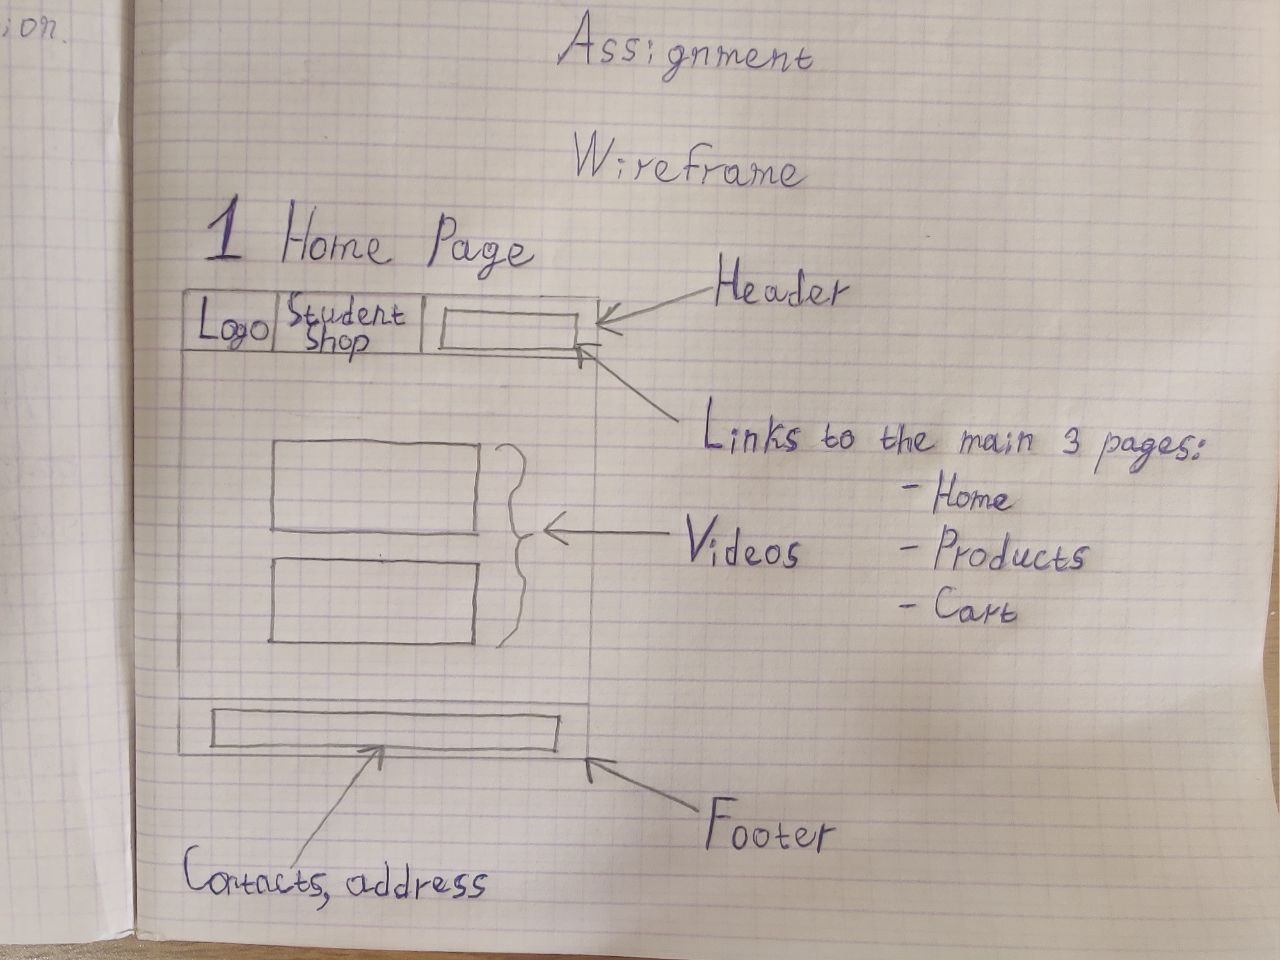 ion.
Assignment
Wireframe
1 Home Page
Header
Logo
Student
Shop
Links to the main 3 pages:
- Home
- Products
- Cart
Videos
Footer
Contacts, address